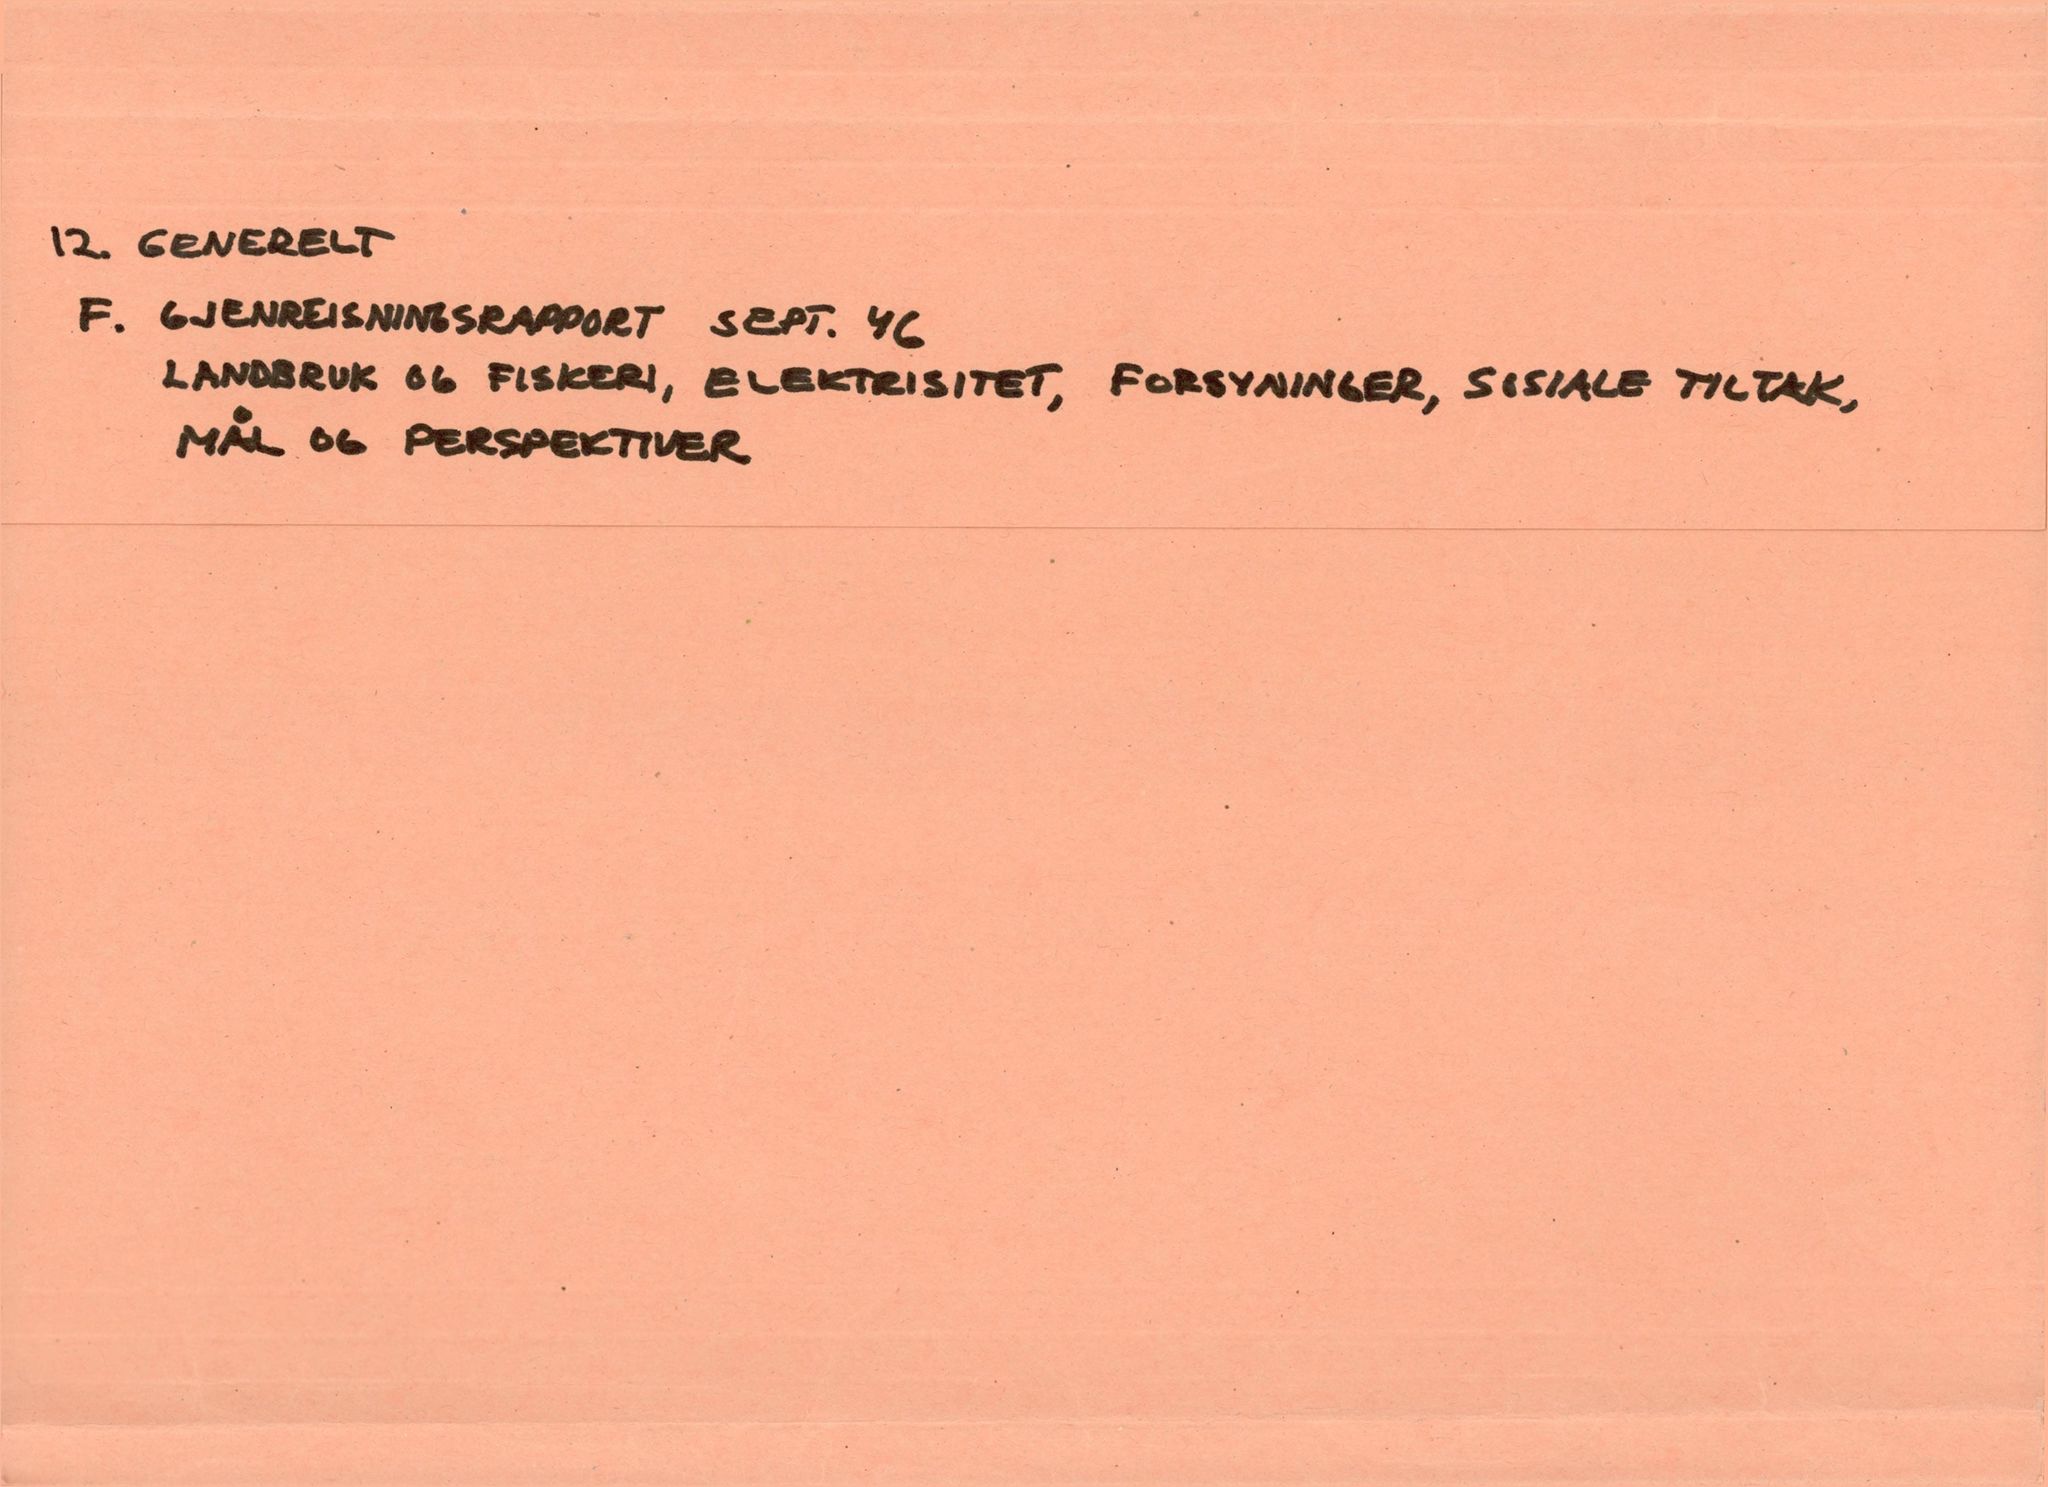 12. GENERELT
F. GJENREISNINGSRAPPORT SEPT. 46
LANDBRUK OG FISKERI, ELEKTRISITET, FORSYNINGER, SOSIALE TILTAK,
MÅL OG PERSPEKTIVER